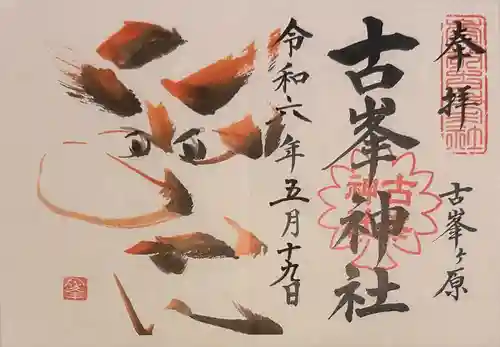 奉拝
古峯ヶ原
古峯神社
古峯神
令和六年五月十九日
峯